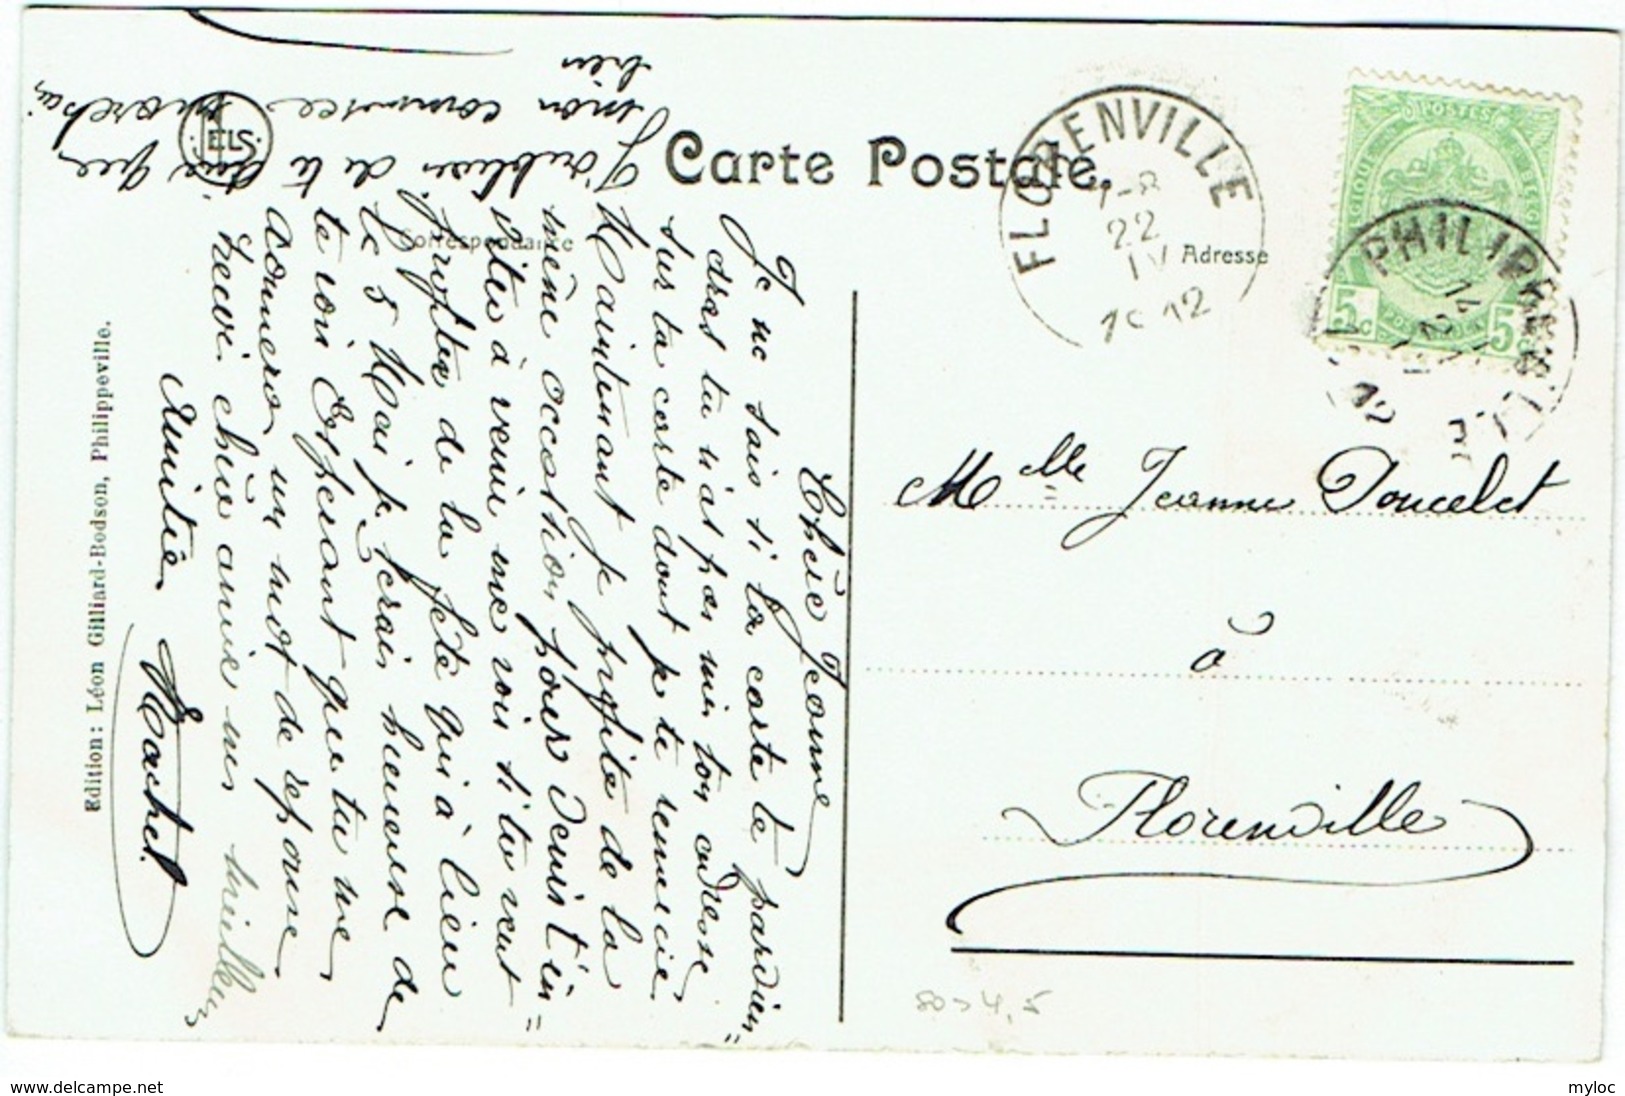 Carte Postale.
Correspondance
Adresse
FLORENVILLE
7-8
22
IV
1912
PHILIPPEVILLE
14
12
POSTES
BELGIQUE
5c
5c
Mlle Jeanne Poucelet
à
Florenville
Chère Jeanne
Je ne sais si ta carte te parvien=
dras tu n'as pas mis ton adresse
sur ta carte dont je te remercie.
Maintenant je profite de la
même occasion pour venir t'in=
viter à venir me voir si tu veut
profiter de la fête qui à lieu
le 5 Mai je serais heureuse de
te voir Espérant que tu me
donneras un mot de réponse
recois chère amie mes meilleurs
Amitiés Rachel
J'oubliais de te dire que
mon commerce marche
bien
Edition: Léon Gilliard-Bodson, Philippeville.
NELS
80 > 4,5
www.delcampe.net
myloc